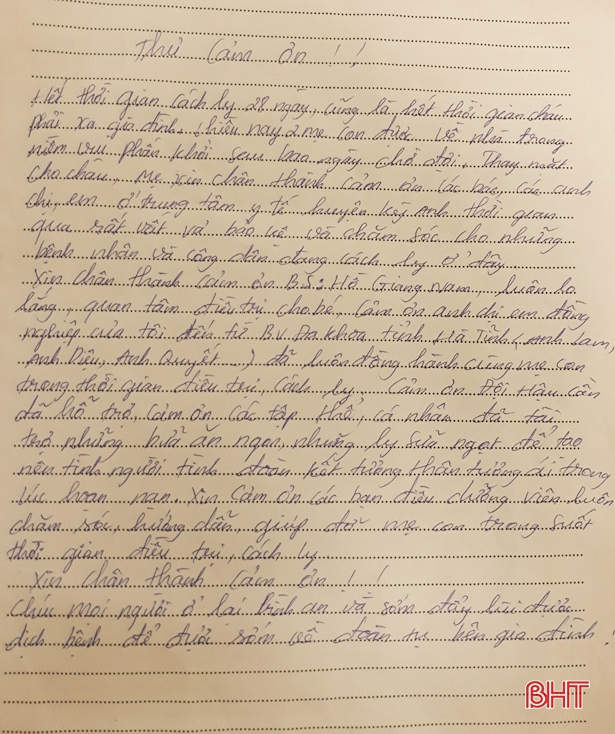 Thư cảm ơn !!
Hết thời gian cách ly 28 ngày, cũng là hết thời gian cháu
phải xa gia đình. Chiều nay 2 mẹ con được về nhà trong
niềm vui phấn khởi sau bao ngày chờ đợi. Thay mặt
cho cháu, Mẹ xin chân thành cảm ơn các bác, các anh
chị, em ở trung tâm y tế huyện Kỳ Anh thời gian
qua rất vất vả bảo vệ và chăm sóc cho những
bệnh nhân và công dân đang cách ly ở đây
Xin chân thành cảm ơn B.S: Hồ Giang Nam, luôn lo
lắng, quan tâm điều trị cho bé, cảm ơn anh chị em đồng
nghiệp của tôi đến từ B.V Đa khoa tỉnh Hà Tĩnh (Anh Lam,
Anh Diệu, Anh Quyết...) đã luôn đồng hành cùng mẹ con
trong thời gian điều trị, cách ly. Cảm ơn Đội Hậu cần
đã hỗ trợ, cảm ơn các tập thể, cá nhân đã tài
trợ những bữa ăn ngon, những ly sữa ngọt để tạo
nên tình người tình đoàn kết tương thân tương ái trong
lúc hoạn nạn. Xin cảm ơn các bạn điều dưỡng viên luôn
chăm sóc, hướng dẫn, giúp đỡ mẹ con trong suốt
thời gian điều trị, cách ly
Xin chân thành cảm ơn !!
Chúc mọi người ở lại bình an và sớm đẩy lùi được
dịch bệnh để được sớm về đoàn tụ bên gia đình !
BHT